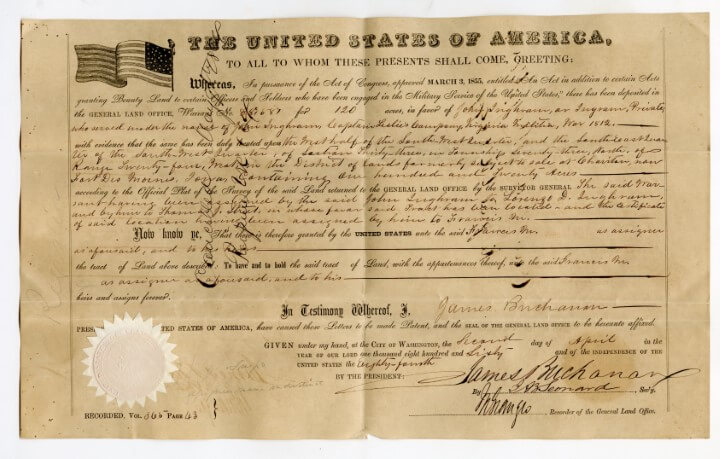 THE UNITED STATES OF AMERICA,
TO ALL TO WHOM THESE PRESENTS SHALL COME, GREETING:
Whereas, In pursuance of the Act of Congress, approved MARCH 3, 1855, entitled "An Act in addition to certain Acts
granting Bounty Land to certain Officers and Soldiers who have been engaged in the Military Service of the United States," there has been deposited in
the GENERAL LAND OFFICE, Warrant No. for 120 acres, in favor of John Inghram, or Ingram, Private,
who served under the name of John Inghram, Captain Company, Virginia Militia, War 1812.
with evidence that the same has been duly located upon the West half of the South West quarter, and the South East quar-
ter of the South West quarter of Section Thirty three, in Township Seventy three, North, of
Range Twenty four, in the District of Lands formerly subject to sale at Chariton, now
Fort Des Moines, Iowa, Containing One hundred and Twenty Acres
according to the Official Plat of the Survey of the said Land returned to the GENERAL LAND OFFICE by the SURVEYOR GENERAL The said War-
rant having been assigned by the said John Inghram to Lorenzo D. Inghram,
and by him to Thomas J. in whose favor said Tract has been located and the Certificate
of said location has been assigned by him to Francis M.
Now know ye, That there is therefore granted by the UNITED STATES unto the said Francis M. as assignee
as aforesaid, and to his heirs
the tract of Land above described: To have and to hold the said tract of Land, with the appurtenances thereof, unto the said Francis M.
as assignee as aforesaid, and to his
heirs and assigns forever.
In Testimony Whereof, I, James Buchanan
PRESIDENT OF THE UNITED STATES OF AMERICA, have caused these Letters to be made Patent, and the SEAL OF THE GENERAL LAND OFFICE to be hereunto affixed.
GIVEN under my hand, at the CITY OF WASHINGTON, the Second day of April in the
YEAR OF OUR LORD one thousand eight hundred and Sixty and of the INDEPENDENCE OF THE
UNITED STATES the eighty-fourth
BY THE PRESIDENT: James Buchanan
By Leonard Sec'y.
Recorder of the General Land Office.
RECORDED, VOL. PAGE 43